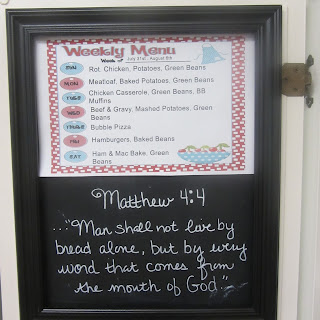 Weekly Menu
Week of July 31st - August 6th
SUN Rot. Chicken, Potatoes, Green Beans
MON Meatloaf, Baked Potatoes, Green Beans
TUES Chicken Casserole, Green Beans, BB
Muffins
WED Beef & Gravy, Mashed Potatoes, Green
Beans
THURS Bubble Pizza
FRI Hamburgers, Baked Beans
SAT Ham & Mac Bake, Green
Beans
Matthew 4:4
..."Man shall not live by
bread alone, but by every
word that comes from
the mouth of God."